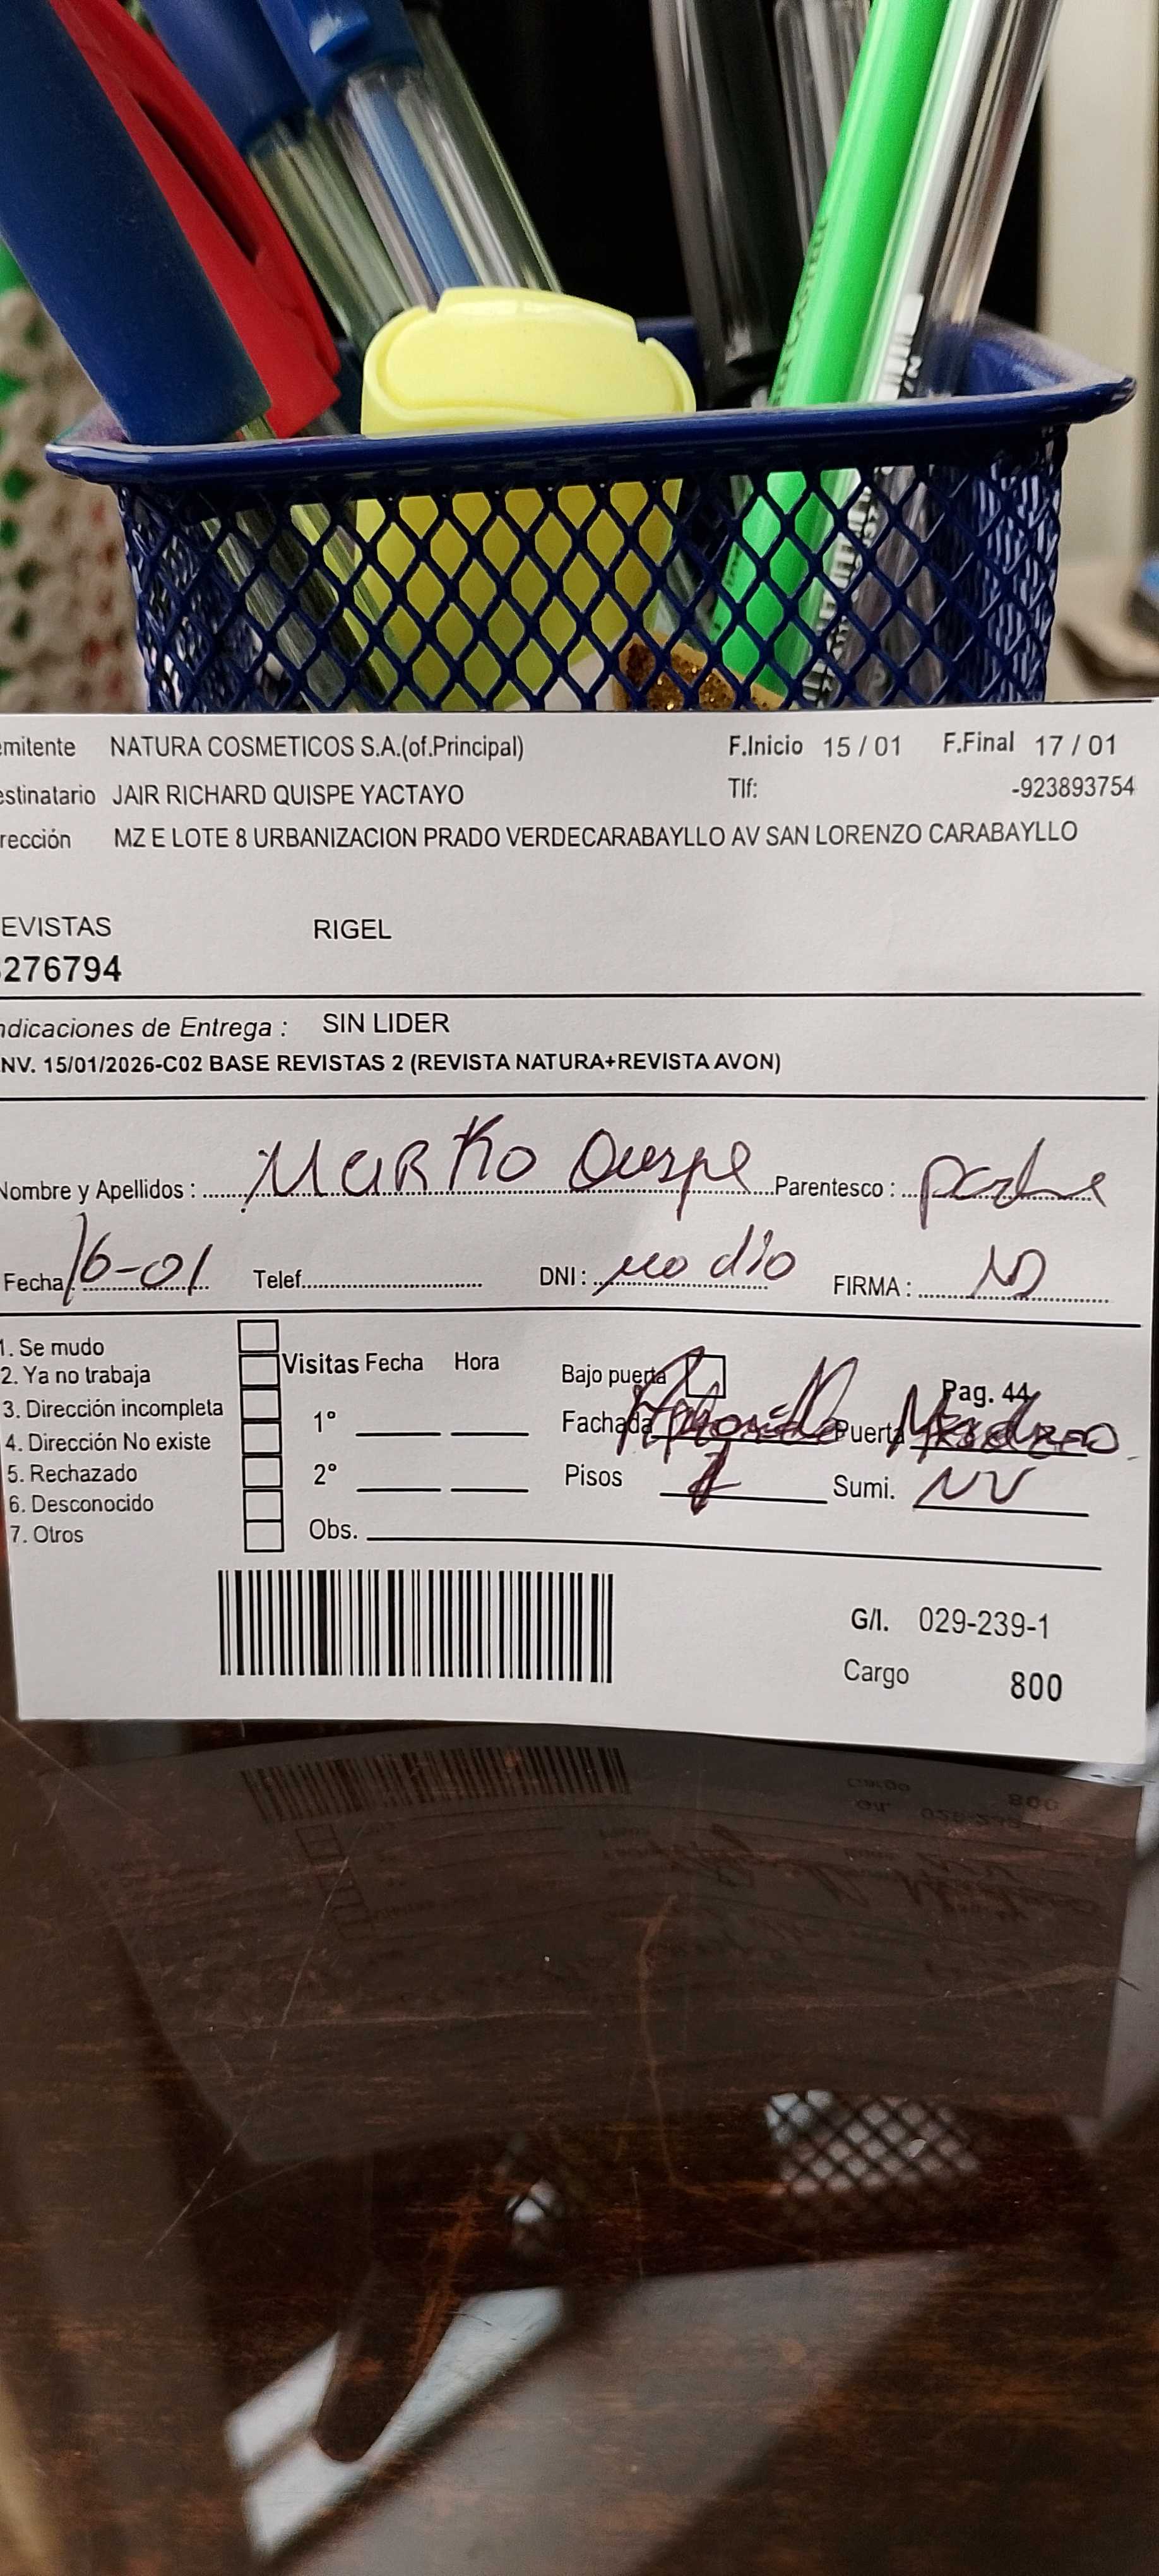 emitente NATURA COSMETICOS S.A.(of.Principal) F.Inicio 15 / 01 F.Final 17 / 01
estinatario JAIR RICHARD QUISPE YACTAYO Tlf: -923893754
rección MZ E LOTE 8 URBANIZACION PRADO VERDECARABAYLLO AV SAN LORENZO CARABAYLLO
EVISTAS RIGEL
276794
ndicaciones de Entrega : SIN LIDER
NV. 15/01/2026-C02 BASE REVISTAS 2 (REVISTA NATURA+REVISTA AVON)
Nombre y Apellidos : MARKO Quispe Parentesco : padre
Fecha 16-01 Telef. DNI : no dio FIRMA :
1. Se mudo
2. Ya no trabaja Visitas Fecha Hora Bajo puerta
3. Dirección incompleta 1° Fachada Puerta Pag. 44
4. Dirección No existe
5. Rechazado 2° Pisos Sumi. NV
6. Desconocido
7. Otros Obs.
G/I. 029-239-1
Cargo 800